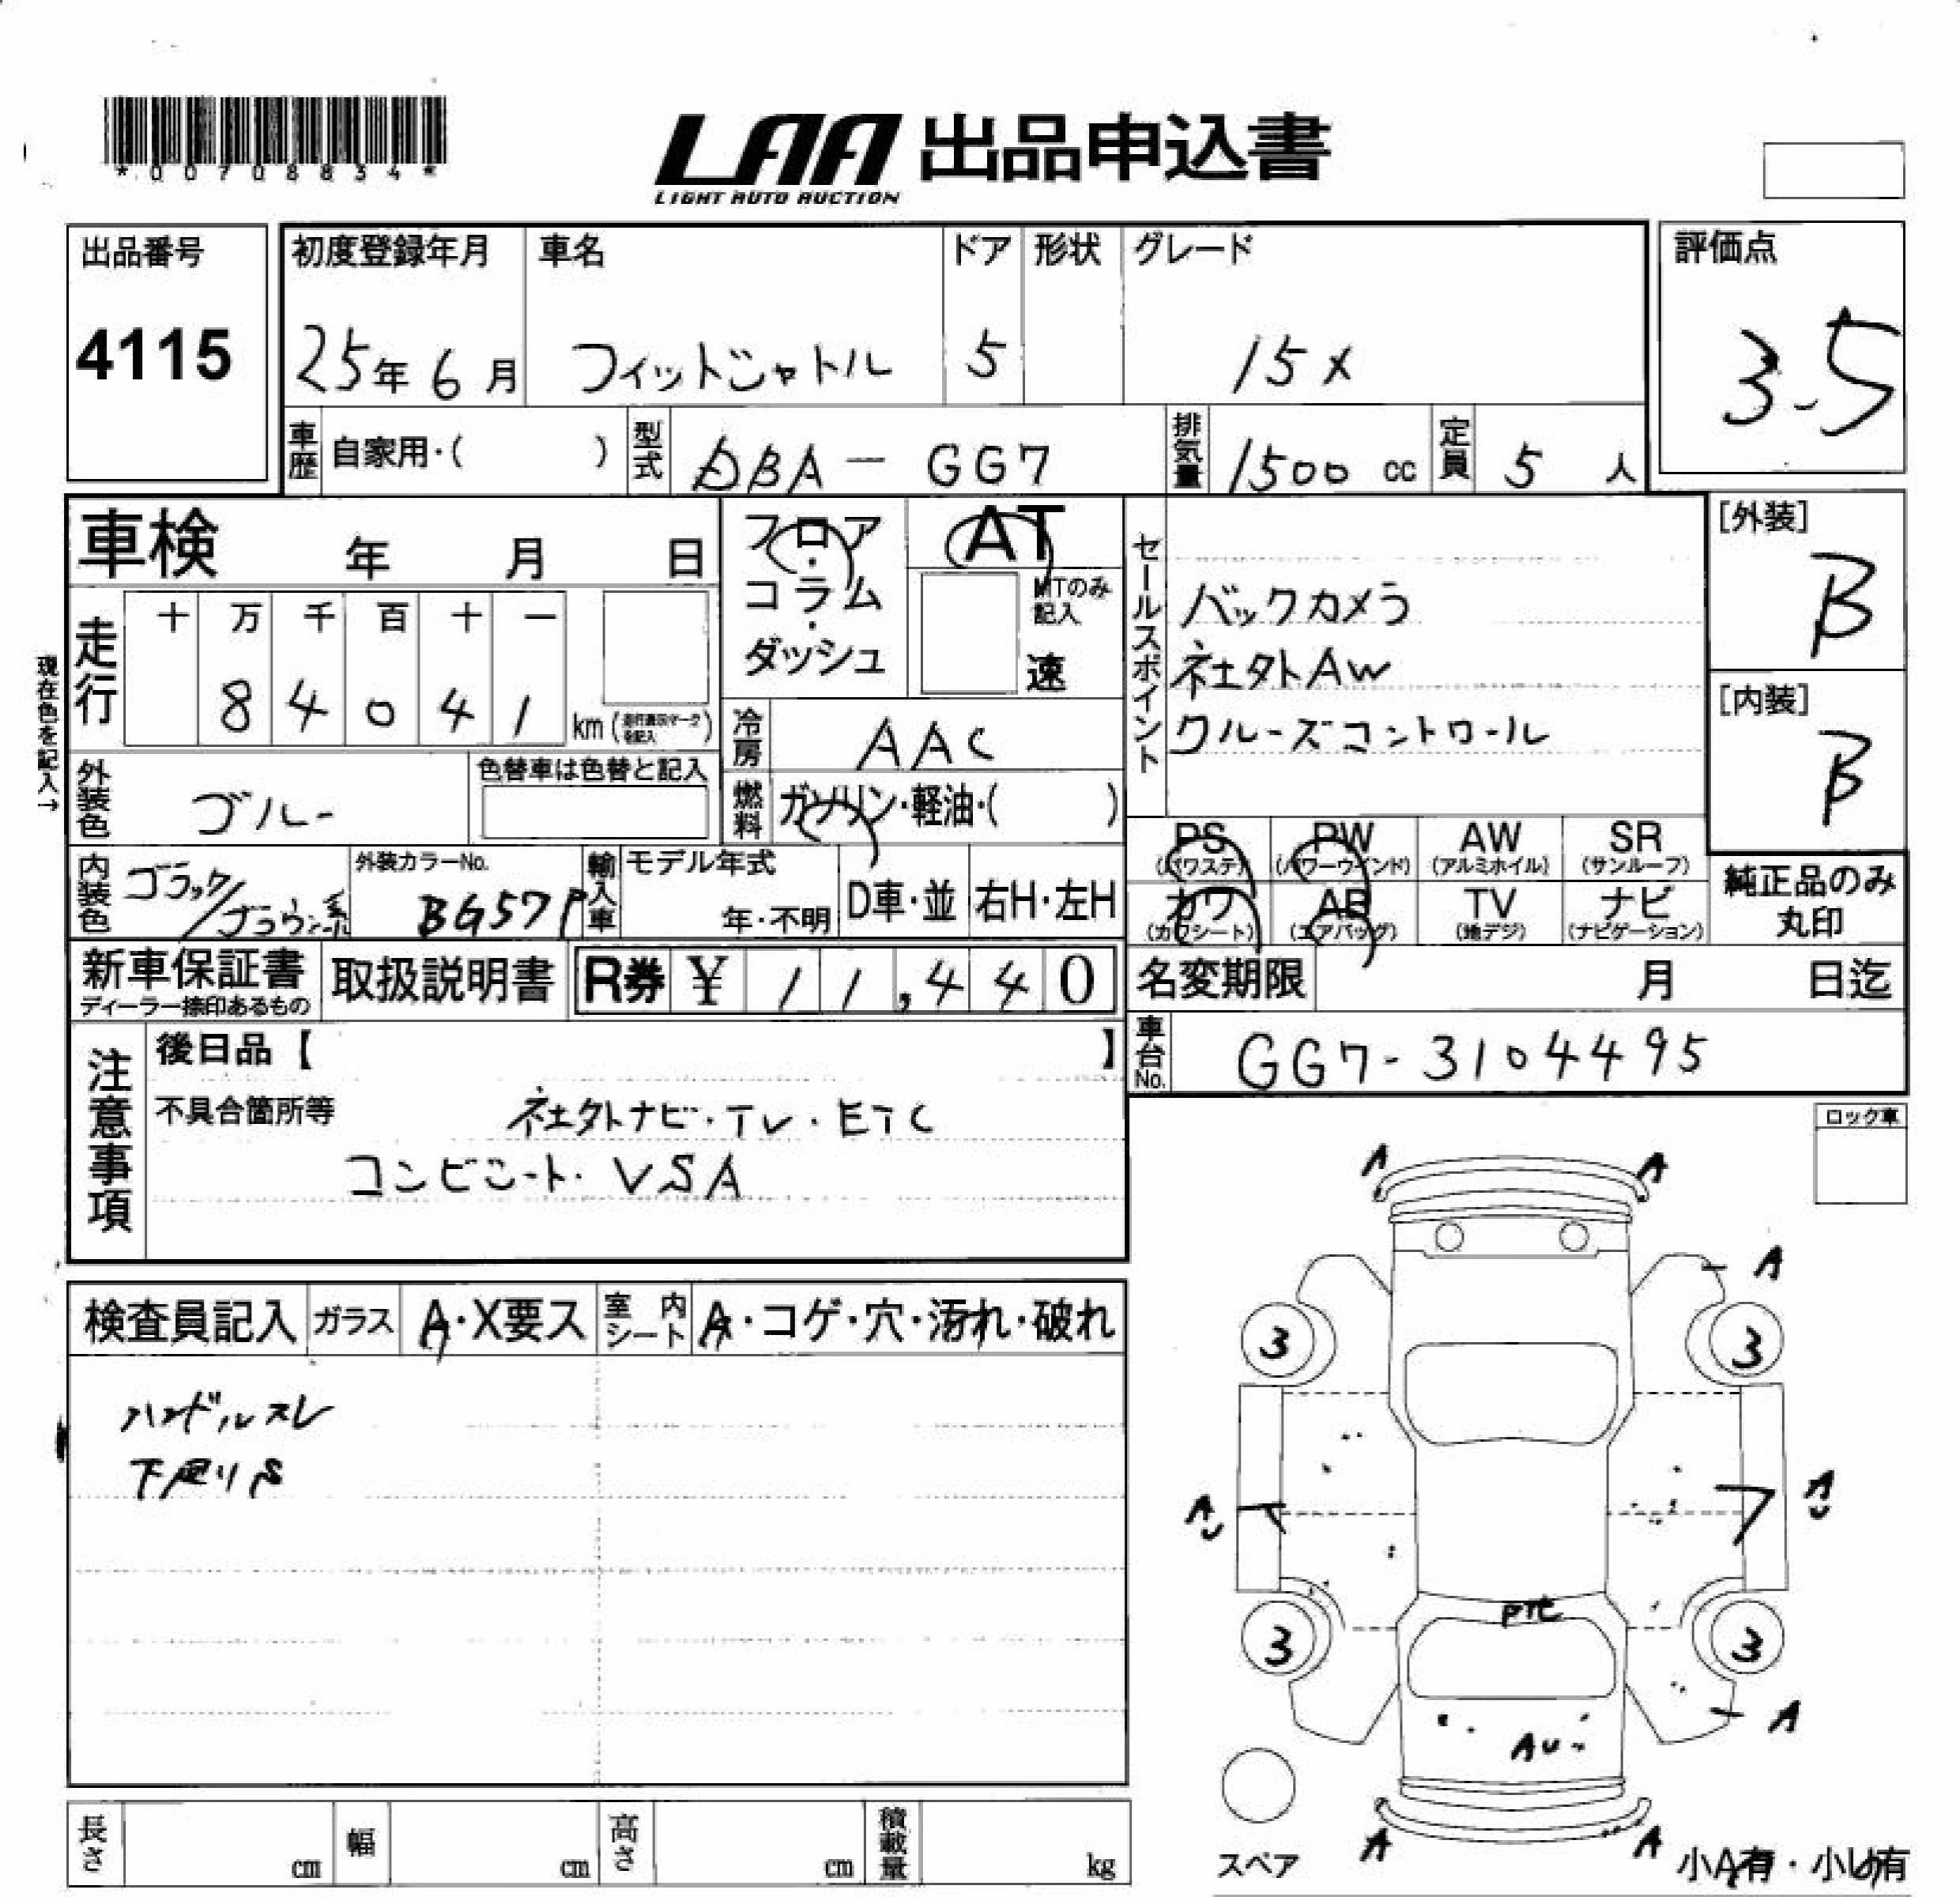 *00708834*
LAA 出品申込書
LIGHT AUTO AUCTION
出品番号
4115
初度登録年月
25年6月
車名
フィットシャトル
ドア
5
形状
グレード
15X
評価点
3.5
車歴
自家用・( )
型式
DBA-GG7
排気量
1500 cc
定員
5 人
車検 年 月 日
フロア・コラム・ダッシュ
AT
MTのみ記入
速
セールスポイント
バックカメラ
社外AW
クルーズコントロール
[外装]
B
[内装]
B
現在色を記入→
走行
十 万 千 百 十 一
8 4 0 4 1 km
冷房
AAC
外装色
ブルー
色替車は色替と記入
燃料
ガソリン・軽油・( )
PS
(パワステ)
PW
(パワーウインド)
AW
(アルミホイル)
SR
(サンルーフ)
カワ
(カワシート)
AB
(エアバッグ)
TV
(地デジ)
ナビ
(ナビゲーション)
純正品のみ
丸印
内装色
ブラック/ブラウン系
外装カラーNo.
BG57P
輸入車
モデル年式
年・不明
D車・並
右H・左H
新車保証書
ディーラー捺印あるもの
取扱説明書
R券 ¥ 11,440
名変期限 月 日迄
車台No.
GG7-3104495
注意事項
後日品【 】
不具合箇所等
社外ナビ・TV・ETC
コンビシート・VSA
ロック車
検査員記入
ガラス
A・X要ス
室内シート
A・コゲ・穴・汚れ・破れ
ハンドルスレ
下廻りS
A A
A
3 3
A A
3 3
A
AU
A A
スペア
小A有・小U有
長さ cm
幅 cm
高さ cm
積載量 kg